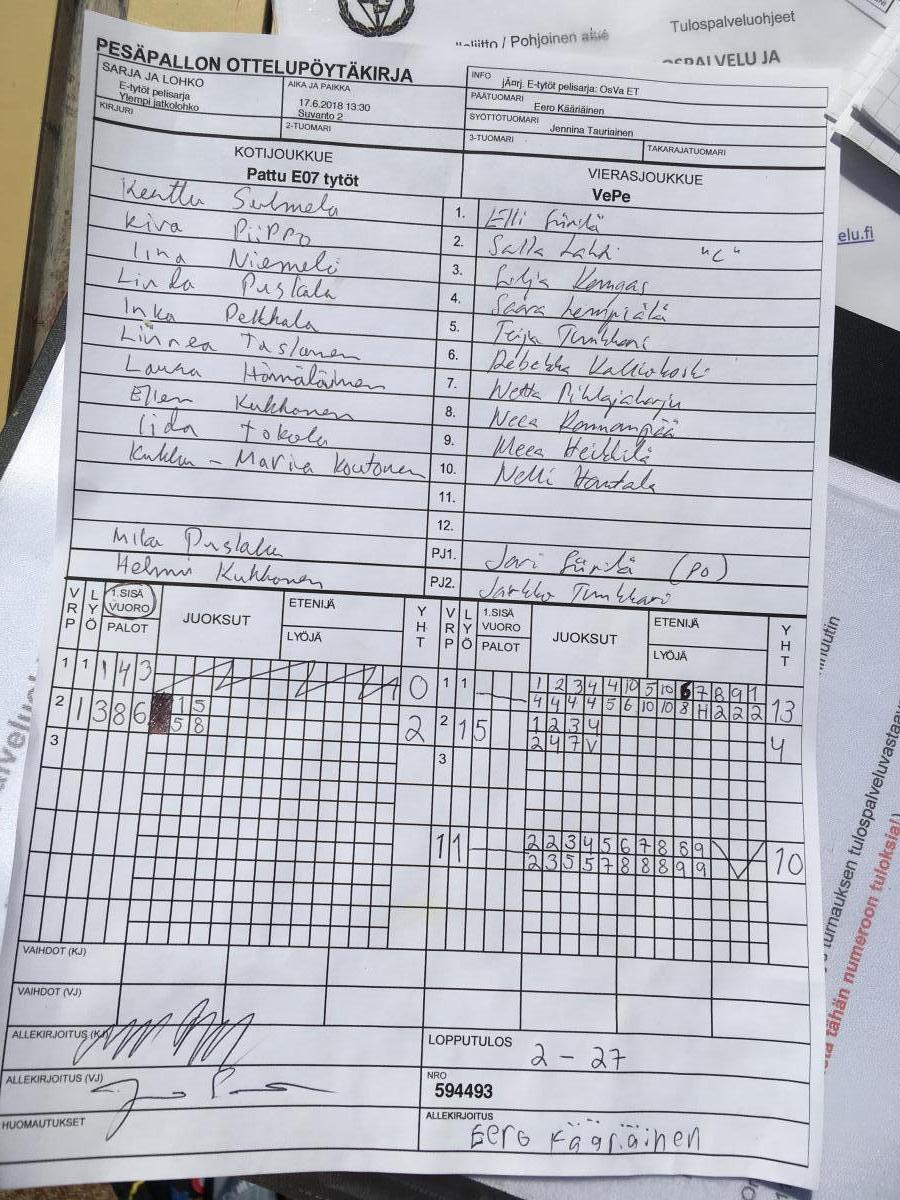 Tulospalveluohjeet
/ Pohjoinen alue
OSPALVELU JA
elu.fi
PESÄPALLON OTTELUPÖYTÄKIRJA
SARJA JA LOHKO
E-tytöt pelisarja
Ylempi jatkolohko
KIRJURI
AIKA JA PAIKKA
17.6.2018 13:30
Suvanto 2
2-TUOMARI
INFO
jÄrj. E-tytöt pelisarja: OsVa ET
PÄÄTUOMARI
Eero Kääriäinen
SYÖTTÖTUOMARI
Jennina Tauriainen
3-TUOMARI
TAKARAJATUOMARI
KOTIJOUKKUE
Pattu E07 tytöt
VIERASJOUKKUE
VePe
Kerttu 1. Elli
Kiva Piippo 2. Salla Lahdi "C"
Iina Niemelä 3. Lilja Kangas
Linda Puskala 4. Saara
Inka Pelkkala 5. Teija
Linnea 6. Rebekka Kalliokoski
Laura Hämäläinen 7. Netta Pihlajaharju
Ellen Kukkonen 8. Neea
Iida Tokola 9. Meea Heikkilä
Kukka-Maria Koutonen 10. Nelli Hautala
11.
12.
Mika Puskala PJ1. Jari (PO)
Helmi Kukkonen PJ2. Jarkko
VRP LYÖ 1.SISÄ VUORO PALOT JUOKSUT ETENIJÄ LYÖJÄ YHT VRP LYÖ 1.SISÄ VUORO PALOT JUOKSUT ETENIJÄ LYÖJÄ YHT
1 1 1 4 3 0 1 1 1 2 3 4 4 10 5 10 6 7 8 9 1 13
4 4 4 4 5 6 10 10 8 H 2 2 2
2 1 3 8 6 1 5 2 2 1 5 1 2 3 4 4
5 8 2 4 7 V
3 3
1 1 2 2 3 4 5 6 7 8 6 9 10
2 3 5 5 7 8 8 8 9 9
VAIHDOT (KJ)
VAIHDOT (VJ)
ALLEKIRJOITUS (KJ)
ALLEKIRJOITUS (VJ)
HUOMAUTUKSET
LOPPUTULOS
2 - 27
NRO
594493
ALLEKIRJOITUS
Eero Kääriäinen
turnauksen tulospalveluvastaav
tähän numeroon tuloksia!